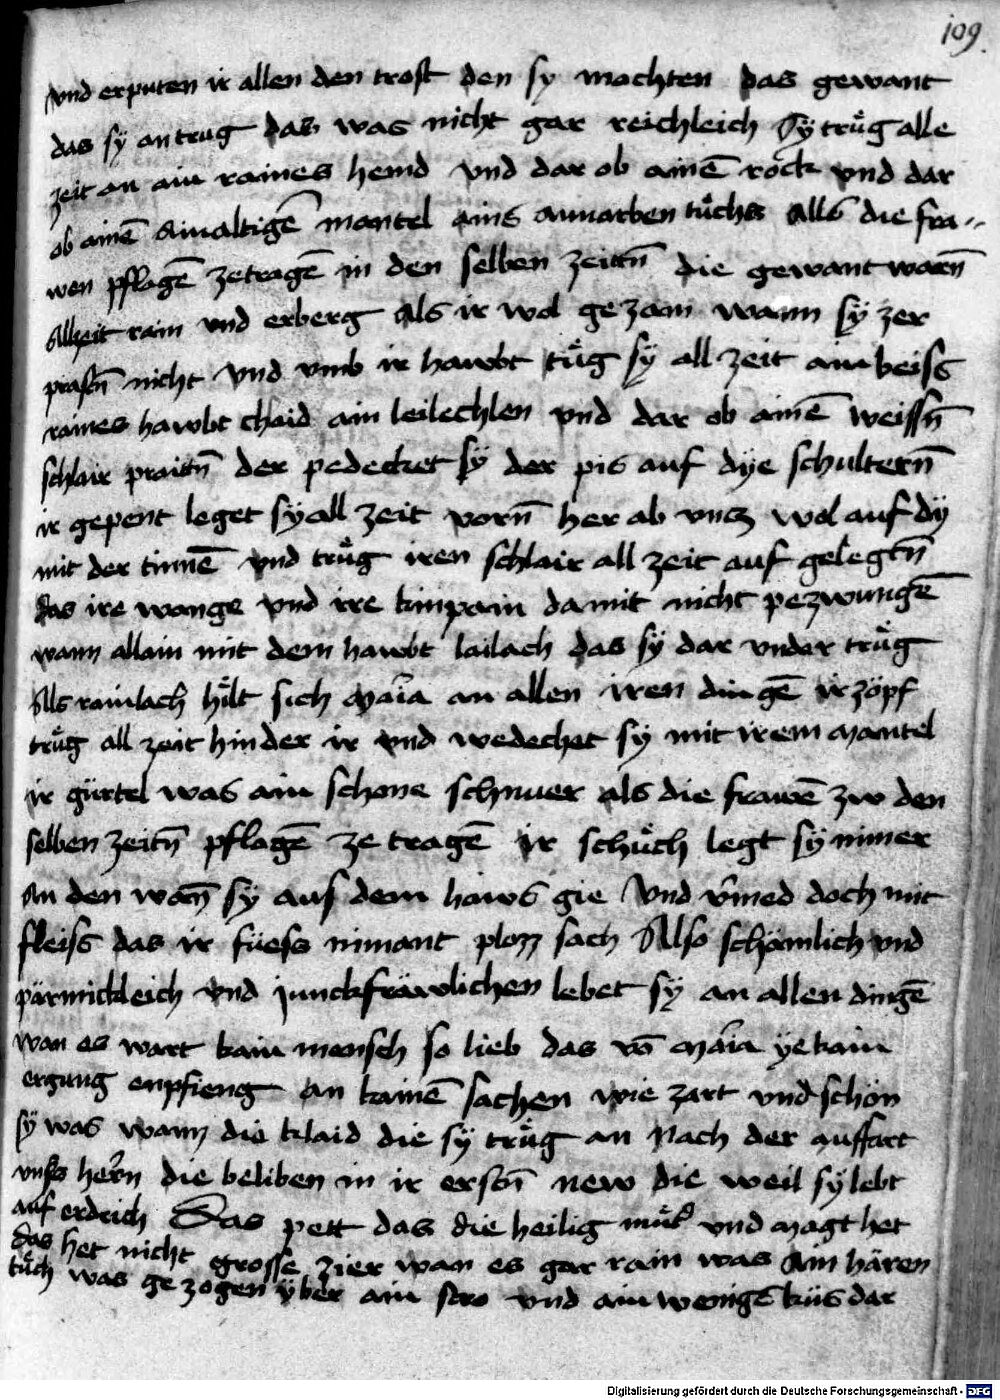 109.
vnd erputen ir allen den trost den sy mochten das gewant
das sy an trug das was nicht gar reichleich Sy trůg alle
zeit an ain raines hemd vnd dar ob ainē rock vnd dar
ob ainē ainualtigē mantel ains amarben tůchs Alls die fra-
wen pflagē zetragē in den selben zeittn̄ die gewant warn̄
Allzeit rain vnd erberg als ir wol ge zam wann sy zer
prastn̄ nicht vnd vmb ir hawbt tůg sy all zeit ain beiss
raines hawbt chaid ain leilechlen vnd dar ob ainē weissn̄
schlair praittn̄ der pedecket sy der pis auf dye schultern̄
ir gepent leget sy all zeit vorn̄ her ab vncz wol auf dy
mit der tinnē vnd trůg iren schlair all zeit auf gelegtn̄
das ire wange vnd ire kinpain damit nicht pezwungē
wann allain mit dem hawbt lailach das sy dar vnder trůg
Als rainlach hilt sich maria an allen iren dingē ir zöpf
trůg all zeit hinder ir vnd wedechet sy mit irem mantel
ir gürtel was ain schone schnuer als die frawē zw den
selben zeitn̄ pflagē ze tragē ir schůch legt sy nimer
an den wan̄ sy aus dem haws gie Vnd v̄med doch mit
fleiss das ir füess nimant plozz sach Also schämlich vnd
pärmickleich vnd junckfräwlichen lebet sy an allen dingē
wan es wart kain mensch so lieb das vō maria ye kain
ergung enpfieng an kainē sachen wie zart vnd schön
sy was wann die klaid die sy trůg an Nach der auffart
vnsers hern̄ die beliben in ir erstn̄ new die weil sy lebt
auf erdrich Das pett das die heilig můt̄ vnd magt het
das het nicht grosse zier wan es gar rain was Ain hären
tůch was ge zogen yber ain stro vnd ain wenigs küs dar
Digitalisierung gefördert durch die Deutsche Forschungsgemeinschaft - DFG